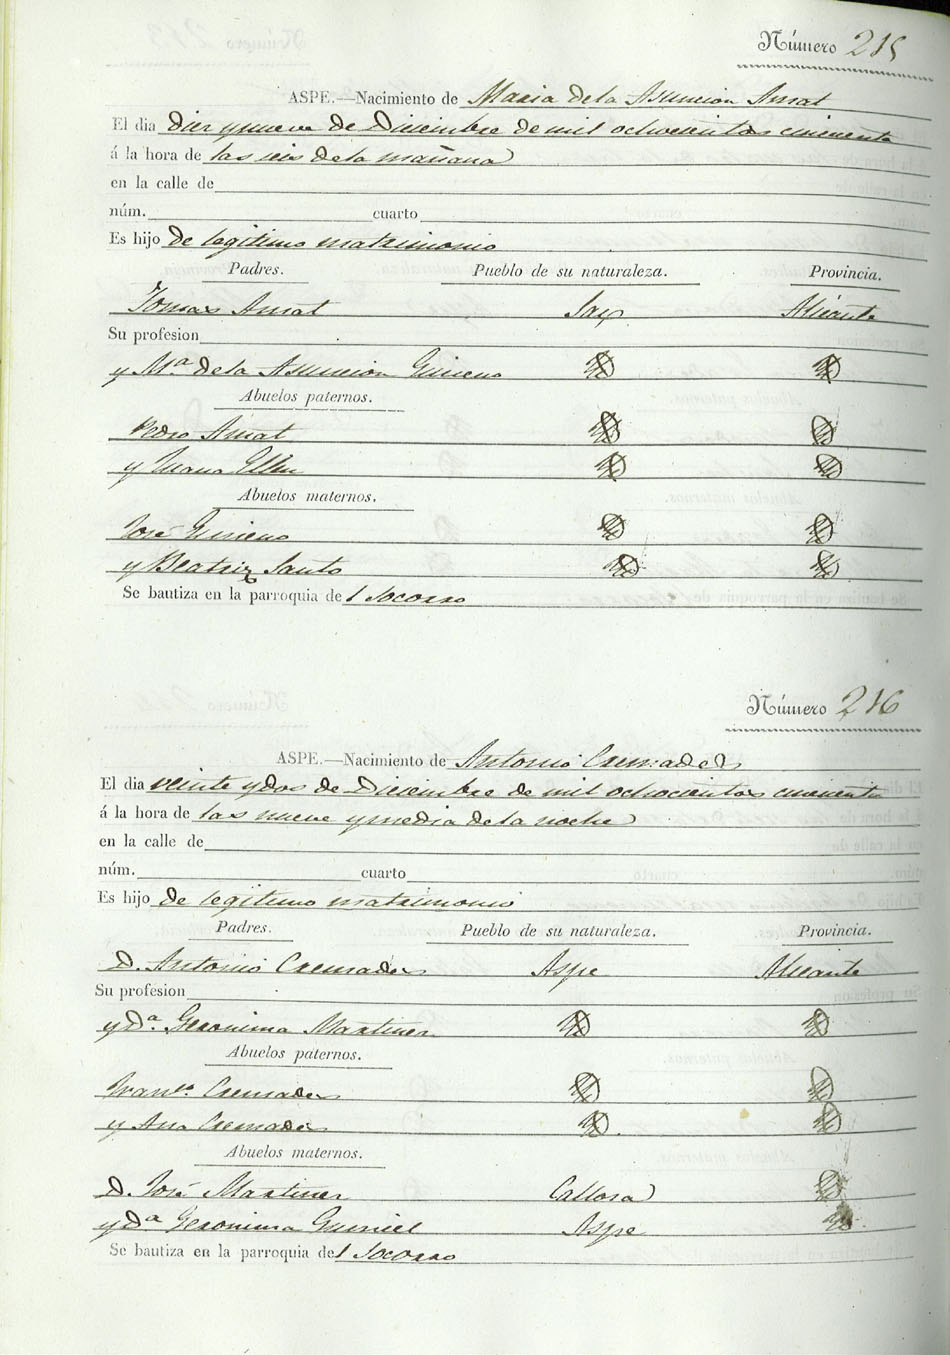 Número 215
ASPE.—Nacimiento de Maria de la Asuncion Amat
El dia diez y nueve de Diciembre de mil ochocientos cincuenta
á la hora de las seis de la mañana
en la calle de
núm. cuarto
Es hijo de legitimo matrimonio
Padres. Pueblo de su naturaleza. Provincia.
Tomas Amat Sax Alicante
Su profesion
y Mª de la Asuncion Gimeno
Abuelos paternos.
Pedro Amat
y Juana
Abuelos maternos.
José Gimeno
y Beatriz Santo
Se bautiza en la parroquia del Socorro
Número 216
ASPE.—Nacimiento de Antonio Cremades
El dia veinte y dos de Diciembre de mil ochocientos cincuenta
á la hora de las nueve y media de la noche
en la calle de
núm. cuarto
Es hijo de legitimo matrimonio
Padres. Pueblo de su naturaleza. Provincia.
D. Antonio Cremades Aspe Alicante
Su profesion
y Dª. Geronima Martinez
Abuelos paternos.
Franco. Cremades
y Ana Cremades
Abuelos maternos.
D. José Martinez Callosa
y Dª Geronima Gumiel Aspe
Se bautiza en la parroquia del Socorro